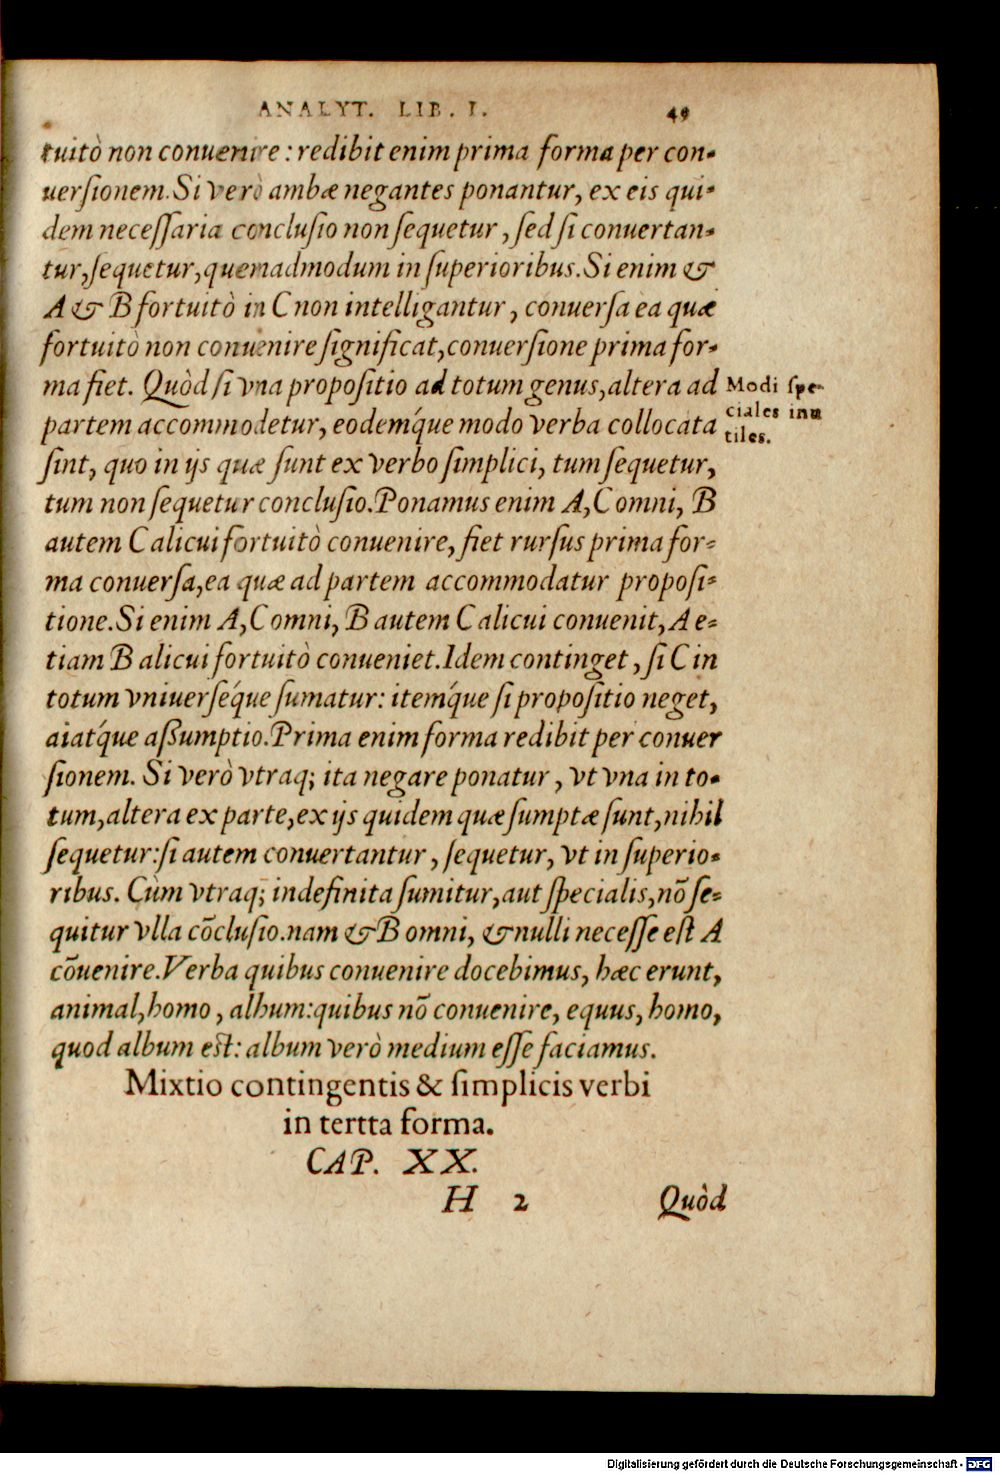 ANALYT. LIB. I. 49
tuitò non conuenire: redibit enim prima forma per con-
uersionem. Si verò ambæ negantes ponantur, ex eis qui-
dem necessaria conclusio non sequetur, sed si conuertan-
tur, sequetur, quemadmodum in superioribus. Si enim &
A & B fortuitò in C non intelligantur, conuersa ea quæ
fortuitò non conuenire significat, conuersione prima for-
ma fiet. Quòd si vna propositio ad totum genus, altera ad
partem accommodetur, eodemq́ue modo verba collocata
sint, quo in ijs quæ sunt ex verbo simplici, tum sequetur,
tum non sequetur conclusio. Ponamus enim A, C omni, B
autem C alicui fortuitò conuenire, fiet rursus prima for-
ma conuersa, ea quæ ad partem accommodatur proposi-
tione. Si enim A, C omni, B autem C alicui conuenit, A e-
tiam B alicui fortuitò conueniet. Idem continget, si C in
totum vniuerséq́ue sumatur: itemq́ue si propositio neget,
aiatq́ue aßumptio. Prima enim forma redibit per conuer
sionem. Si verò vtraq; ita negare ponatur, vt vna in to-
tum, altera ex parte, ex ijs quidem quæ sumptæ sunt, nihil
sequetur: si autem conuertantur, sequetur, vt in superio-
ribus. Cùm vtraq; indefinita sumitur, aut specialis, nō se-
quitur vlla cōclusio. nam & B omni, & nulli necesse est A
cōuenire. Verba quibus conuenire docebimus, hæc erunt,
animal, homo, album: quibus nō conuenire, equus, homo,
quod album est: album verò medium esse faciamus.
Modi spe-
ciales inu
tiles.
Mixtio contingentis & simplicis verbi
in tertta forma.
CAP. XX.
H 2 Quòd
Digitalisierung gefördert durch die Deutsche Forschungsgemeinschaft - DFG